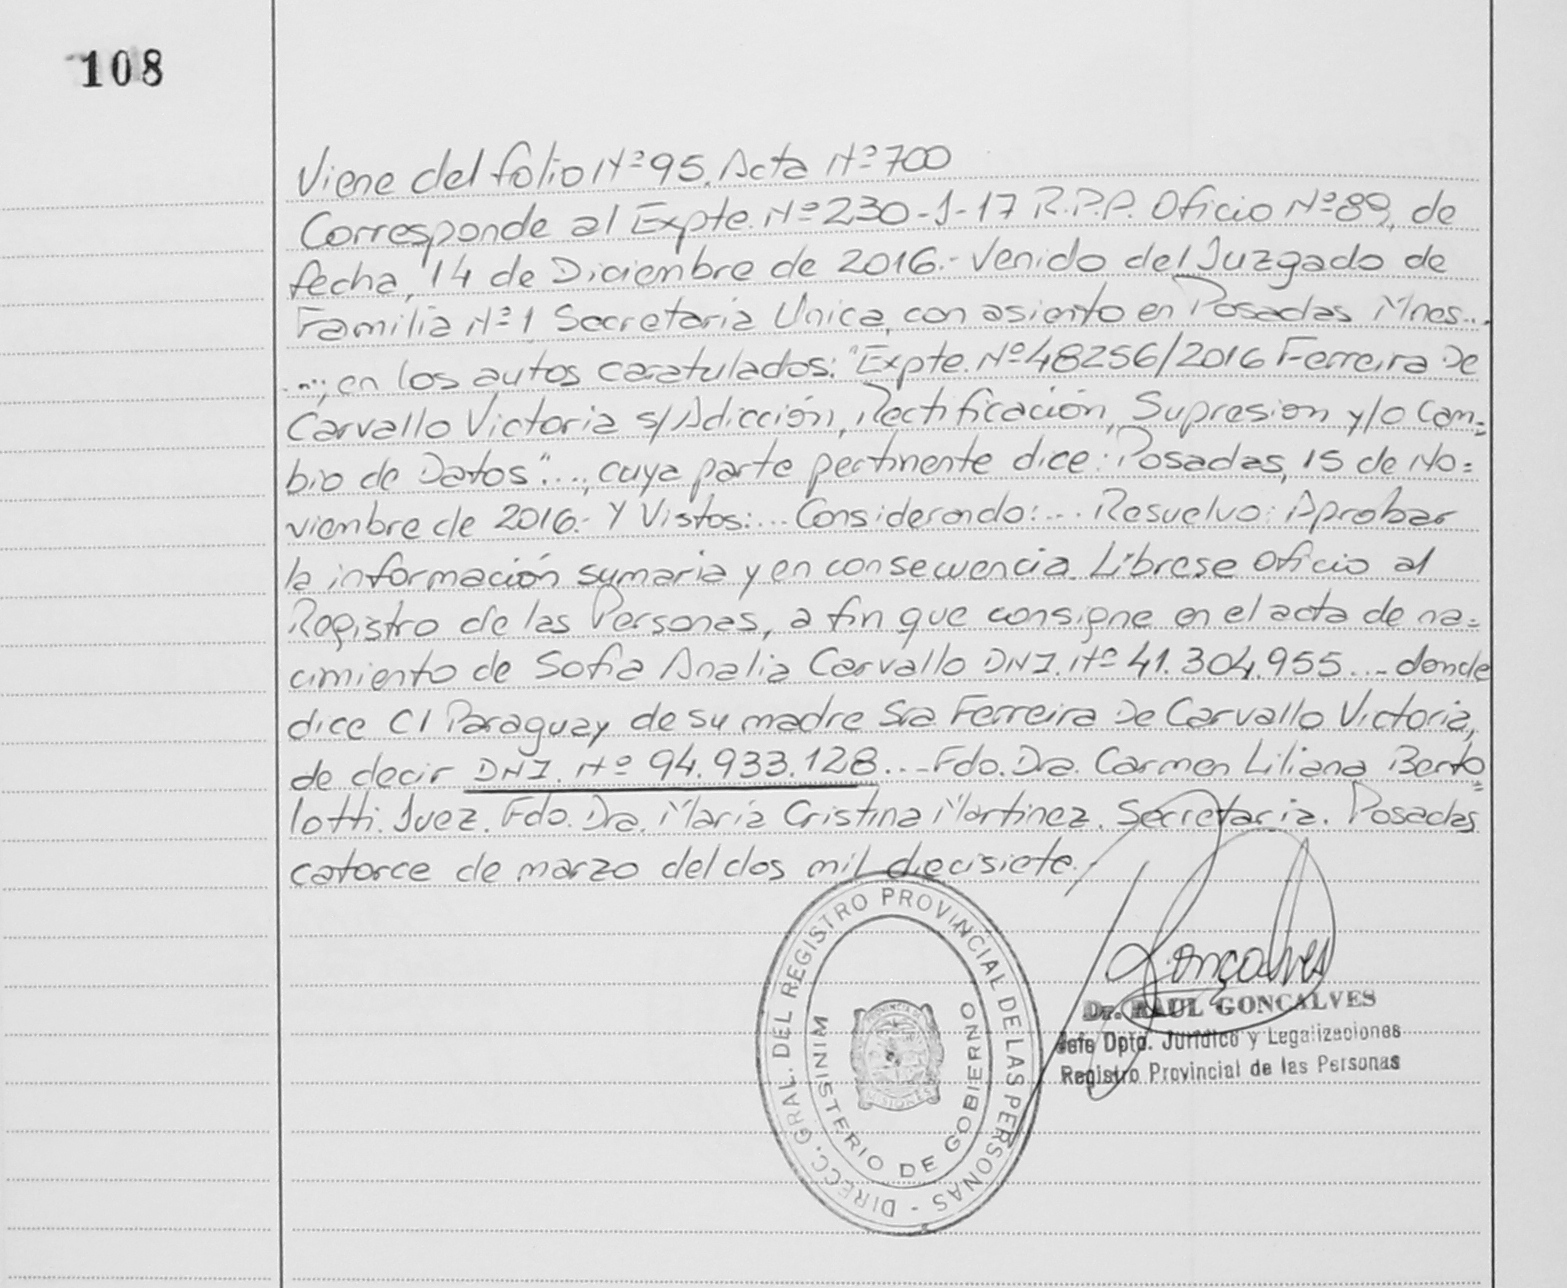 108
Viene del folio Nº 95, Acta Nº 700
Corresponde al Expte. Nº 230-J-17 R.P.P. Oficio Nº 89, de
fecha, 14 de Diciembre de 2016.- Venido del Juzgado de
Familia Nº 1 Secretaria Unica, con asiento en Posadas Mnes...
...; en los autos caratulados: "Expte. Nº 48256/2016 Ferreira De
Carvallo Victoria s/Adicción, Rectificación, Supresion y/o Cam=
bio de Datos"..., cuya parte pertinente dice: Posadas, 15 de No=
viembre de 2016.- Y Vistos:... Considerando:... Resuelvo: Aprobar
la información sumaria y en consecuencia Librese Oficio al
Registro de las Personas, a fin que consigne en el acta de na=
cimiento de Sofia Analia Carvallo DNI. Nº 41.304.955... donde
dice CI Paraguay de su madre Sra. Ferreira De Carvallo Victoria,
de decir DNI. Nº 94.933.128... Fdo. Dra. Carmen Liliana Berto=
lotti. Juez. Fdo. Dra. María Cristina Martinez. Secretaria. Posadas
catorce de marzo del dos mil diecisiete.
DIRECC. GRAL. DEL REGISTRO PROVINCIAL DE LAS PERSONAS -
MINISTERIO DE GOBIERNO
MISIONES
Gonçalves
Dr. RAUL GONCALVES
Jefe Dpto. Jurídico y Legalizaciones
Registro Provincial de las Personas